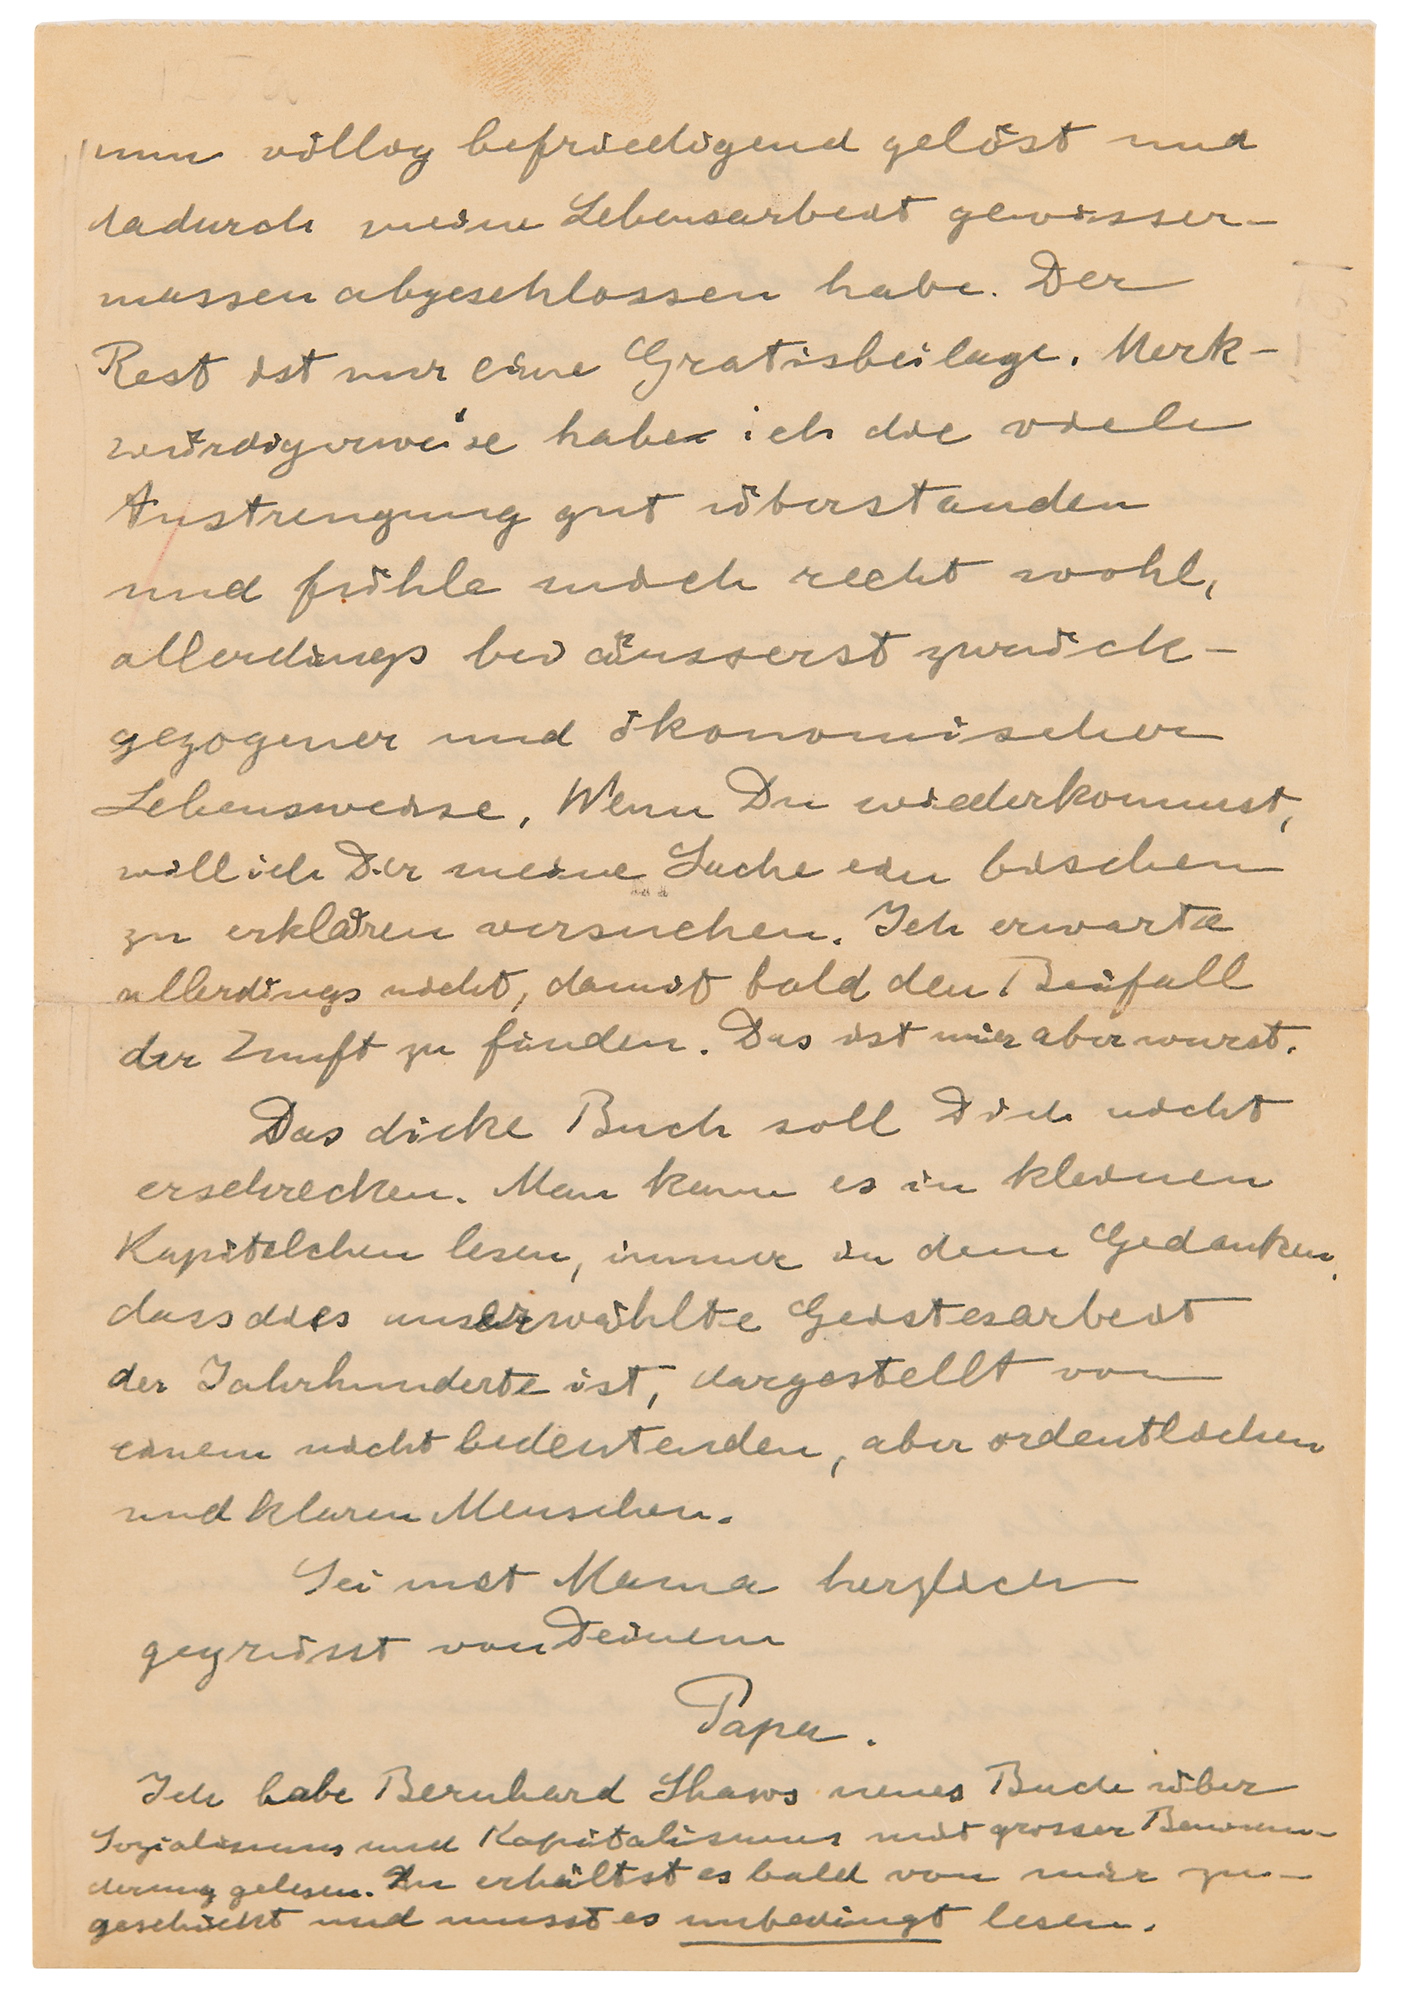 nun völlig befriedigend gelöst und
dadurch meine Lebensarbeit gewisser-
massen abgeschlossen habe. Der
Rest ist nur eine Gratisbeilage. Merk-
würdigerweise habe ich die viele
Anstrengung gut überstanden
und fühle mich recht wohl,
allerdings bei äusserst zurück-
gezogener und ökonomischer
Lebensweise. Wenn Du wiederkommst,
will ich Dir meine Sache ein bischen
zu erklären versuchen. Ich erwarte
allerdings nicht, damit bald den Beifall
der Zunft zu finden. Das ist mir aber wurst.
Das dicke Buch soll Dich nicht
erschrecken. Man kann es in kleinen
Kapitelchen lesen, immer in dem Gedanken,
dass dies auserwählte Geistesarbeit
der Jahrhunderte ist, dargestellt von
einem nicht bedeutenden, aber ordentlichen
und klaren Menschen.
Sei mit Mama herzlich
gegrüsst von Deinem
Papa.
Ich habe Bernhard Shaws neues Buch über
Sozialismus und Kapitalismus mit grosser Bewun-
derung gelesen. Du erhältst es bald von mir zu-
geschickt und musst es unbedingt lesen.